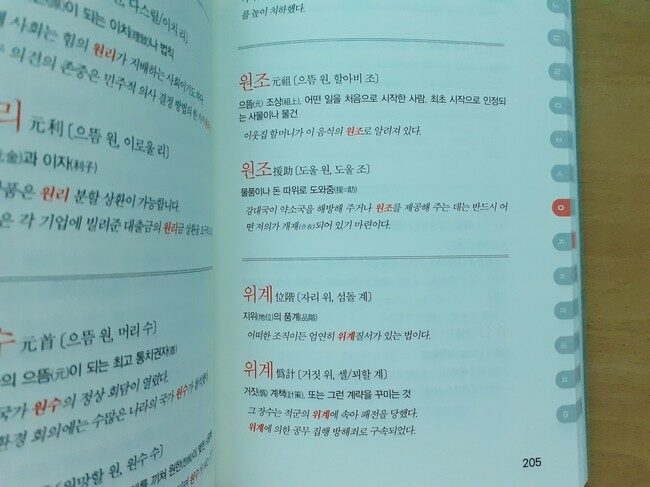 사회는 힘의 원리가 지배하는 사회이기도 하다.
의견의 존중은 민주적 의사 결정 방법의 한
리 元利 [으뜸 원, 이로울 리]
과 이자(利子)
품은 원리 분할 상환이 가능합니다.
은 각 기업에 빌려준 대출금의 원리금 상환을
수 元首 [으뜸 원, 머리 수]
의 으뜸(元)이 되는 최고 통치권자(首)
국가 원수의 정상 회담이 열렸다.
환경 회의에는 수많은 나라의 국가 원수가
원망할 원, 원수 수]
를 높이 치하했다.
원조 元祖 [으뜸 원, 할아비 조]
으뜸(元) 조상(祖上). 어떤 일을 처음으로 시작한 사람. 최초 시작으로 인정되
는 사물이나 물건
이웃집 할머니가 이 음식의 원조로 알려져 있다.
원조 援助 [도울 원, 도울 조]
물품이나 돈 따위로 도와줌(援=助)
강대국이 약소국을 해방해 주거나 원조를 제공해 주는 데는 반드시 어
떤 저의가 개재(介在)되어 있기 마련이다.
위계 位階 [자리 위, 섬돌 계]
지위(地位)의 품계(品階)
어떠한 조직이든 엄연히 위계질서가 있는 법이다.
위계 僞計 [거짓 위, 셀/꾀할 계]
거짓(僞) 계책(計策), 또는 그런 계략을 꾸미는 것
그 장수는 적군의 위계에 속아 패전을 당했다.
위계에 의한 공무 집행 방해죄로 구속되었다.
205
ㄴ
ㄷ
ㄹ
ㅁ
ㅂ
ㅅ
ㅇ
ㅈ
ㅊ
ㅋ
ㅌ
ㅍ
ㅎ